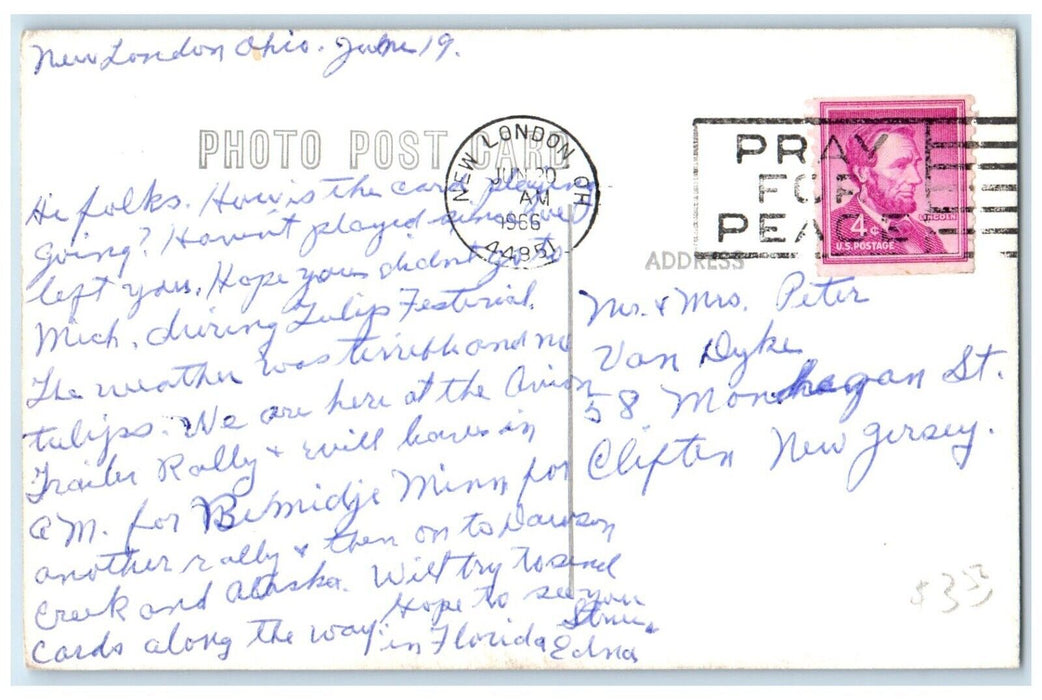 New London Ohio. June 19.
PHOTO POST CARD
NEW LONDON, OH
JUN 20
AM
1966
44851
PRAY
FOR
PEACE
LINCOLN
4¢
U.S. POSTAGE
ADDRESS
Hi folks. How is the card playing
going? Havin't played since we
left you. Hope you didn't get to
Mich. during Tulip Festerial.
The weather was terrible and no
tulips. We are here at the Avion
Trailer Rally & will leave in
A.M. for Bimidje Minn for
another rally & then on to Dawson
Creek and Alaska. Will try to send
cards along the way. Hope to see you
in Florida
Edna
Mr. & Mrs. Peter
Van Dyke
58 Monhegan St.
Clifton New Jersey.